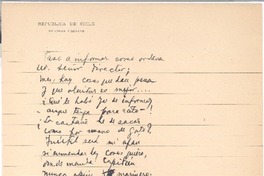 REPUBLICA DE CHILE
Vas a informar como ordena
Ud. Señor Director;
mas, hay cosas que dan pena
y que olvidar es mejor....
¿Qué le habé yo de informar?
aunque tenga para rato
La castaña he de sacar
como por mano de gato?
Inútil será mi afán
si enmendar las cosas quiero,
donde manda Capitán
nunca marinero